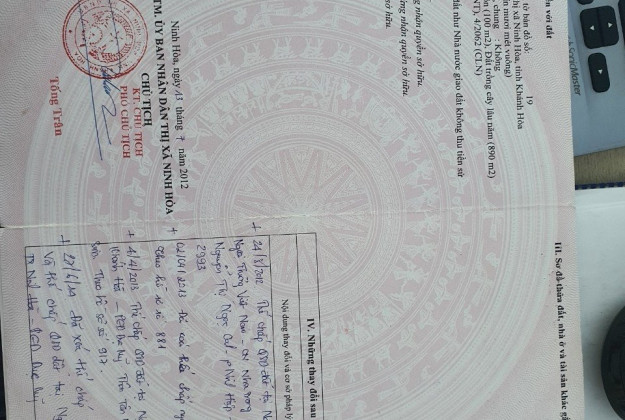 ền với đất
tờ bản đồ số: 19
hị xã Ninh Hòa, tỉnh Khánh Hòa
ín mươi mét vuông)
chung : Không
ôn (100 m2), Đất trồng cây lâu năm (890 m2)
NT), 4/2062 (CLN)
đất như Nhà nước giao đất không thu tiền sử
g nhận quyền sở hữu.
ứng nhận quyền sở hữu.
sở hữu.
Ninh Hòa, ngày 13 tháng 7 năm 2012
TM. ỦY BAN NHÂN DÂN THỊ XÃ NINH HÒA
CHỦ TỊCH
KT. CHỦ TỊCH
PHÓ CHỦ TỊCH
Tống Trân
III. Sơ đồ thửa đất, nhà ở và tài sản khác gắ
IV. Những thay đổi sau
Nội dung thay đổi và cơ sở pháp lý
+ 24/8/2012 Thế chấp QSD đất tại N
Việt Nam - CN Nha Trang
Nguyễn Thị Ngọc
2993
+ 02/04/2013 Đã xóa thế chấp
theo hồ sơ số 881
+ 4/4/2013 Thế chấp QSD đất tại N
Khánh Hòa - PGD
Theo hồ sơ số 917
+ Đã xóa thế chấp
Và thế chấp QSD đất tại Ng